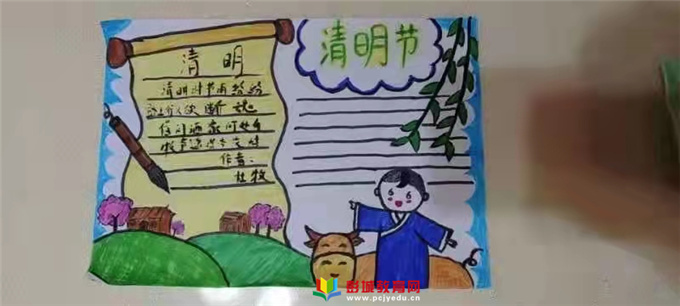 清明
清明时节雨纷纷
路上行人欲断魂
借问酒家何处有
牧童遥指杏花村
作者：
杜牧
清明节
彭城教育网
www.pcjyedu.cn